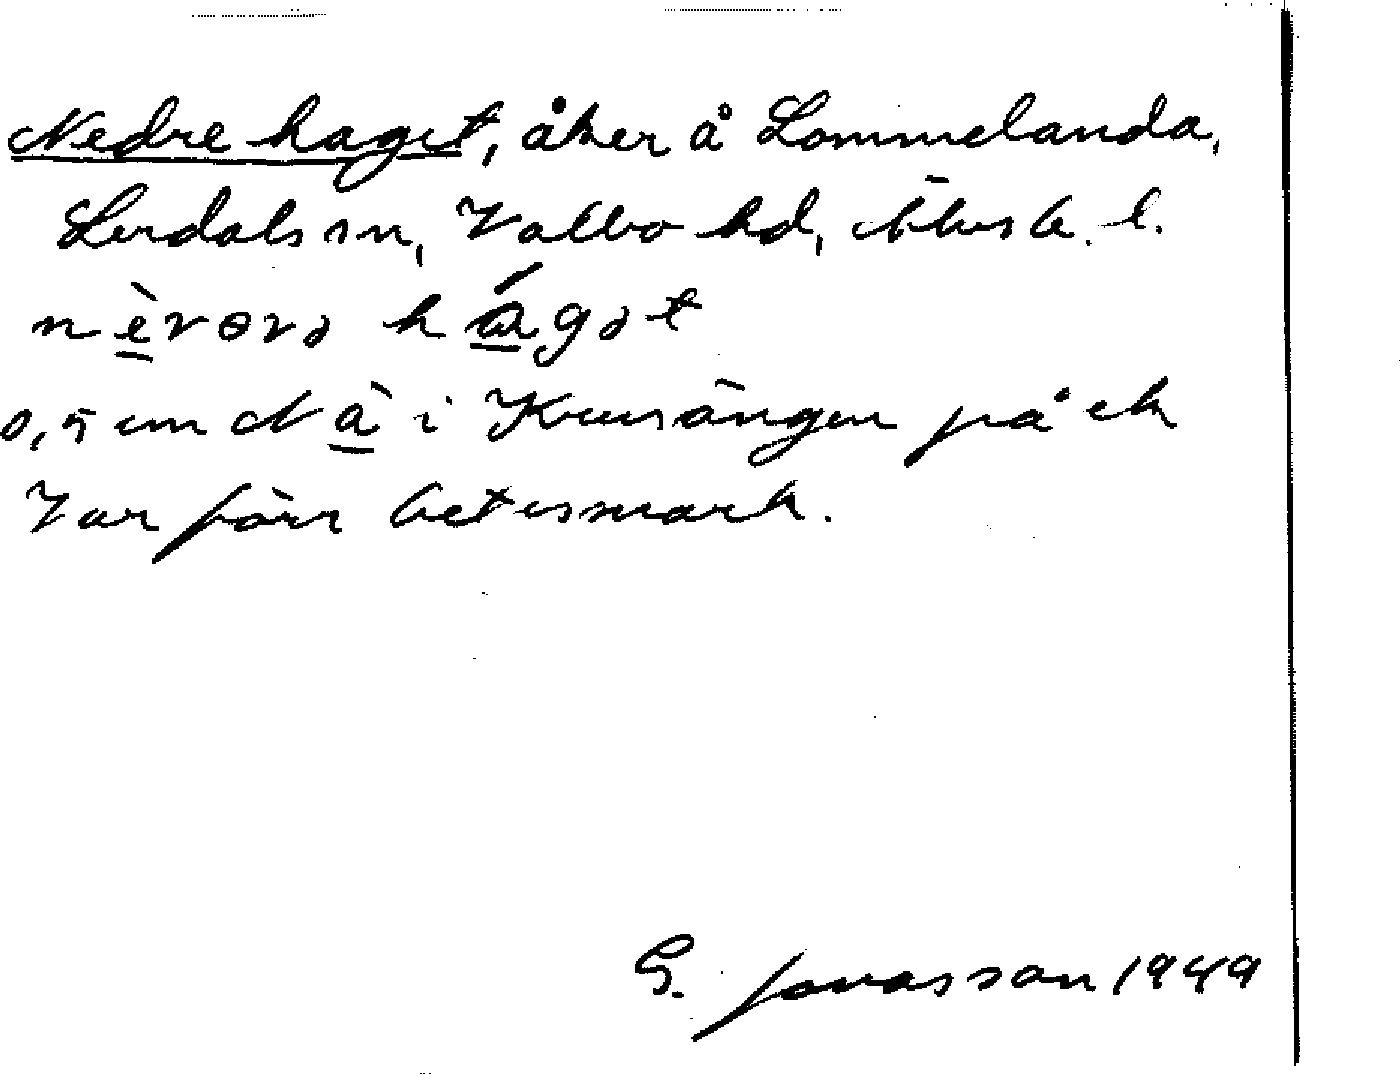 Nedre haget, åker å Lommelanda,
Lerdals sn, Valbo hd, Älvsb. l.
nèrərə hágət
0,5 cm N à i Krusängen på ek
Var förr betesmark.
G. Jonasson 1949